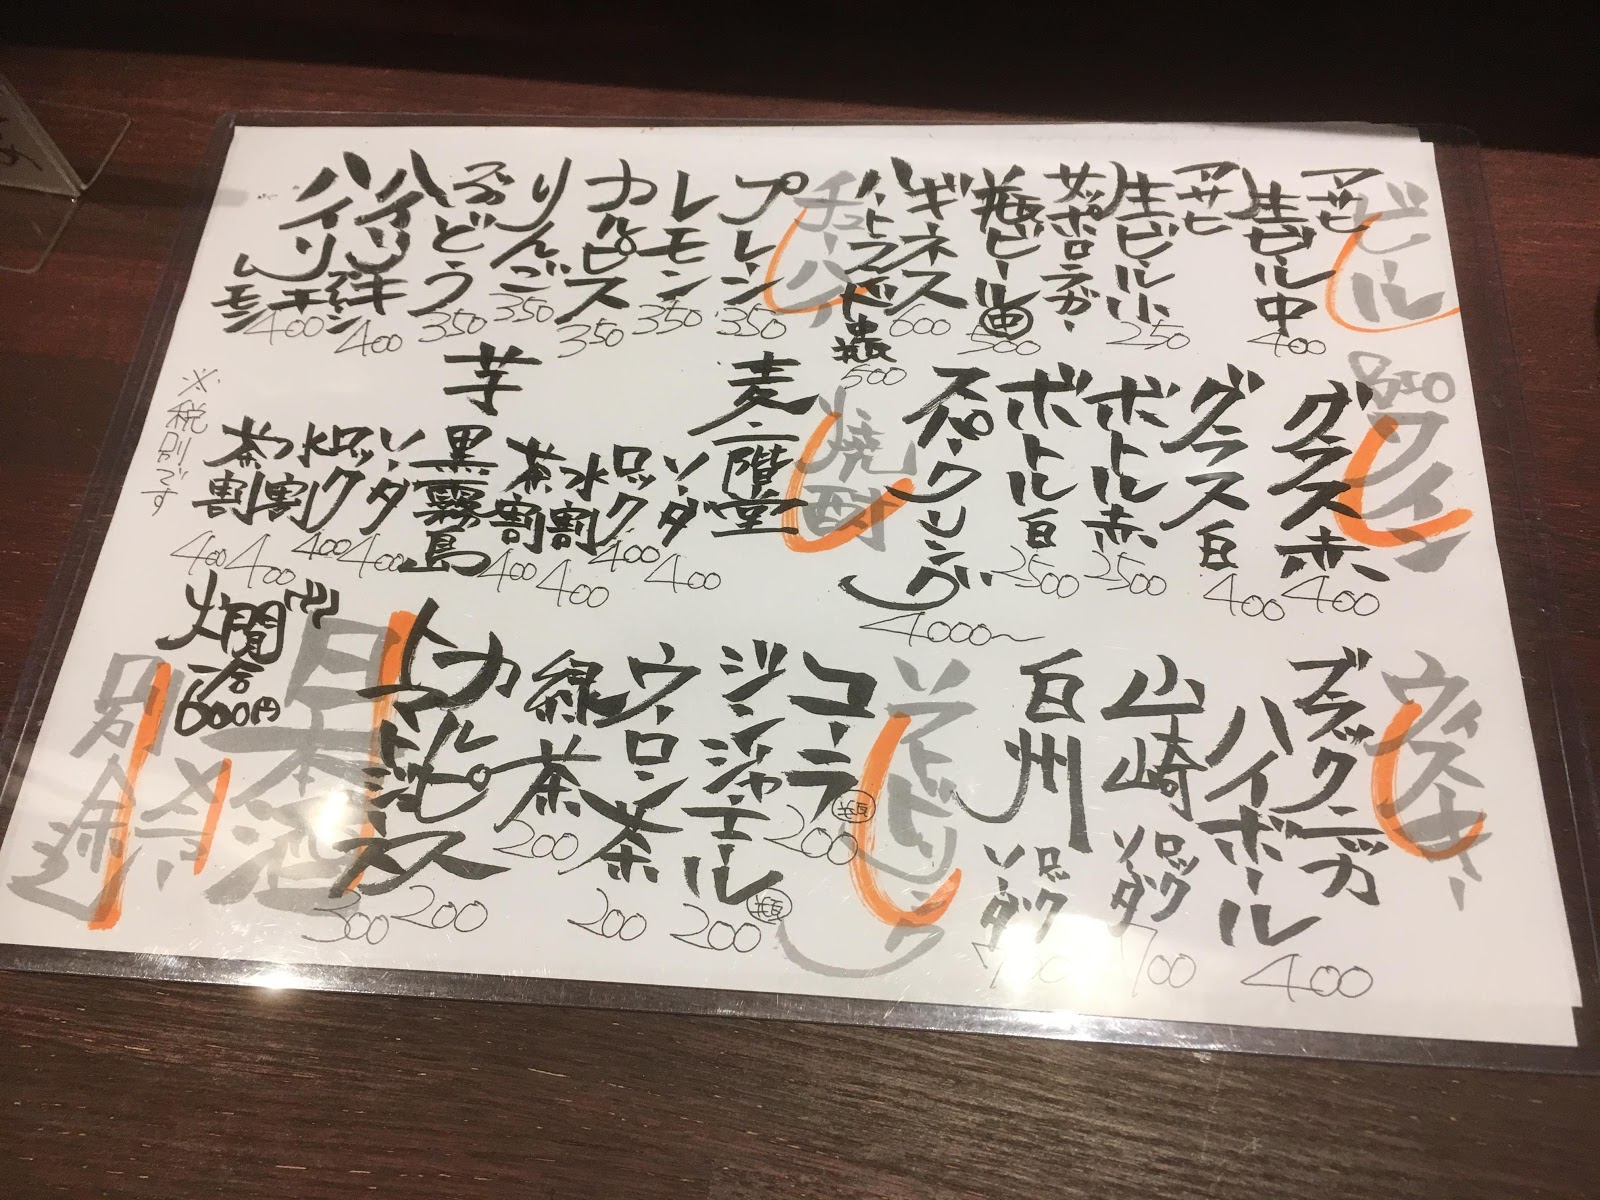 ビール
アサヒ
生ビール中
400
アサヒ
生ビール小
250
サッポロラガー
瓶ビール中
500
ギネス
600
ハートランド
中瓶
500
チューハイ
プレーン
350
レモン
350
カルピス
350
りんご
350
ぶどう
350
ハイリキ
プレーン
400
ハイリキ
レモン
400
BIO
ワイン
グラス赤
400
グラス白
400
ボトル赤
2500
ボトル白
2500
スパークリング
4000〜
焼酎
麦
二階堂
ソーダ
400
ロック
400
水割
400
茶割
400
芋
黒霧島
ソーダ
400
ロック
400
水割
400
茶割
400
※税別です
ウイスキー
ブラックニッカ
ハイボール
400
山崎
ロック
ソーダ
700
白州
ロック
ソーダ
700
ソフトドリンク
コーラ
瓶
200
ジンジャエール
瓶
200
ウーロン茶
200
緑茶
200
カルピス
200
トマトジュース
300
日本酒
燗
一合
600円
冷
別途